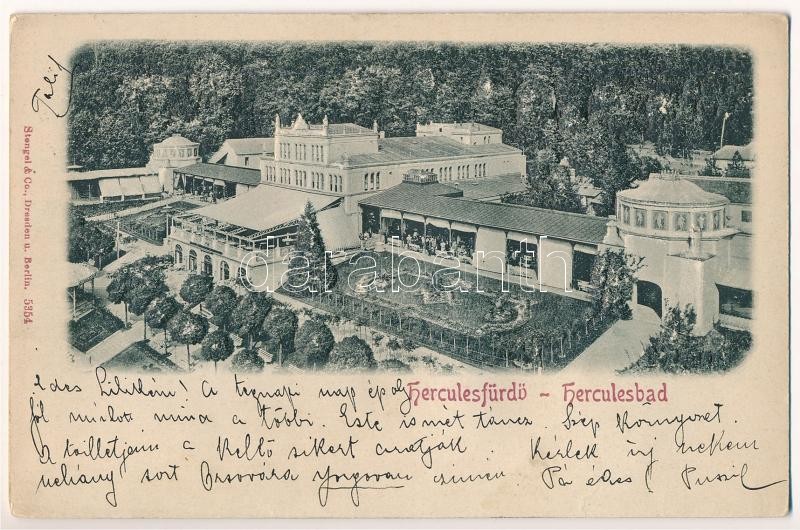 Stengel & Co., Dresden u. Berlin. 5254
darabanth
Herculesfürdő - Herculesbad
Édes Lilikém! A tegnapi nap époly
jól múlott mint a többi. Este ismét táncz. Szép környezet.
A toilletjeim a kellő sikert aratják. Kérlek írj nekem
néhány sort Orsovára Yngovan czímén Pá édes! Puszil